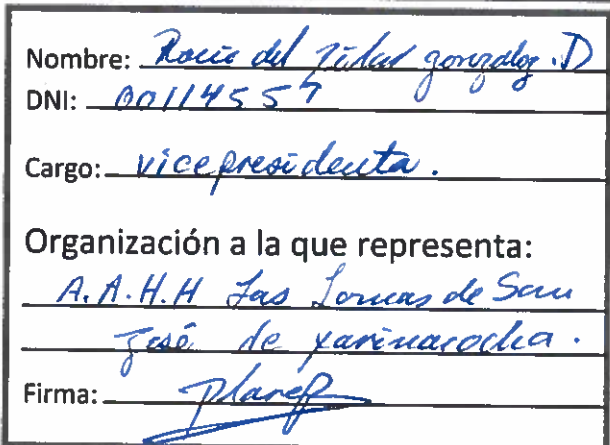 Nombre: Rocio del Pilar gonzalez .D
DNI: 00114557
Cargo: vicepresidenta.
Organización a la que representa:
A.A.H.H Las Lomas de San
José de yarinacocha.
Firma: